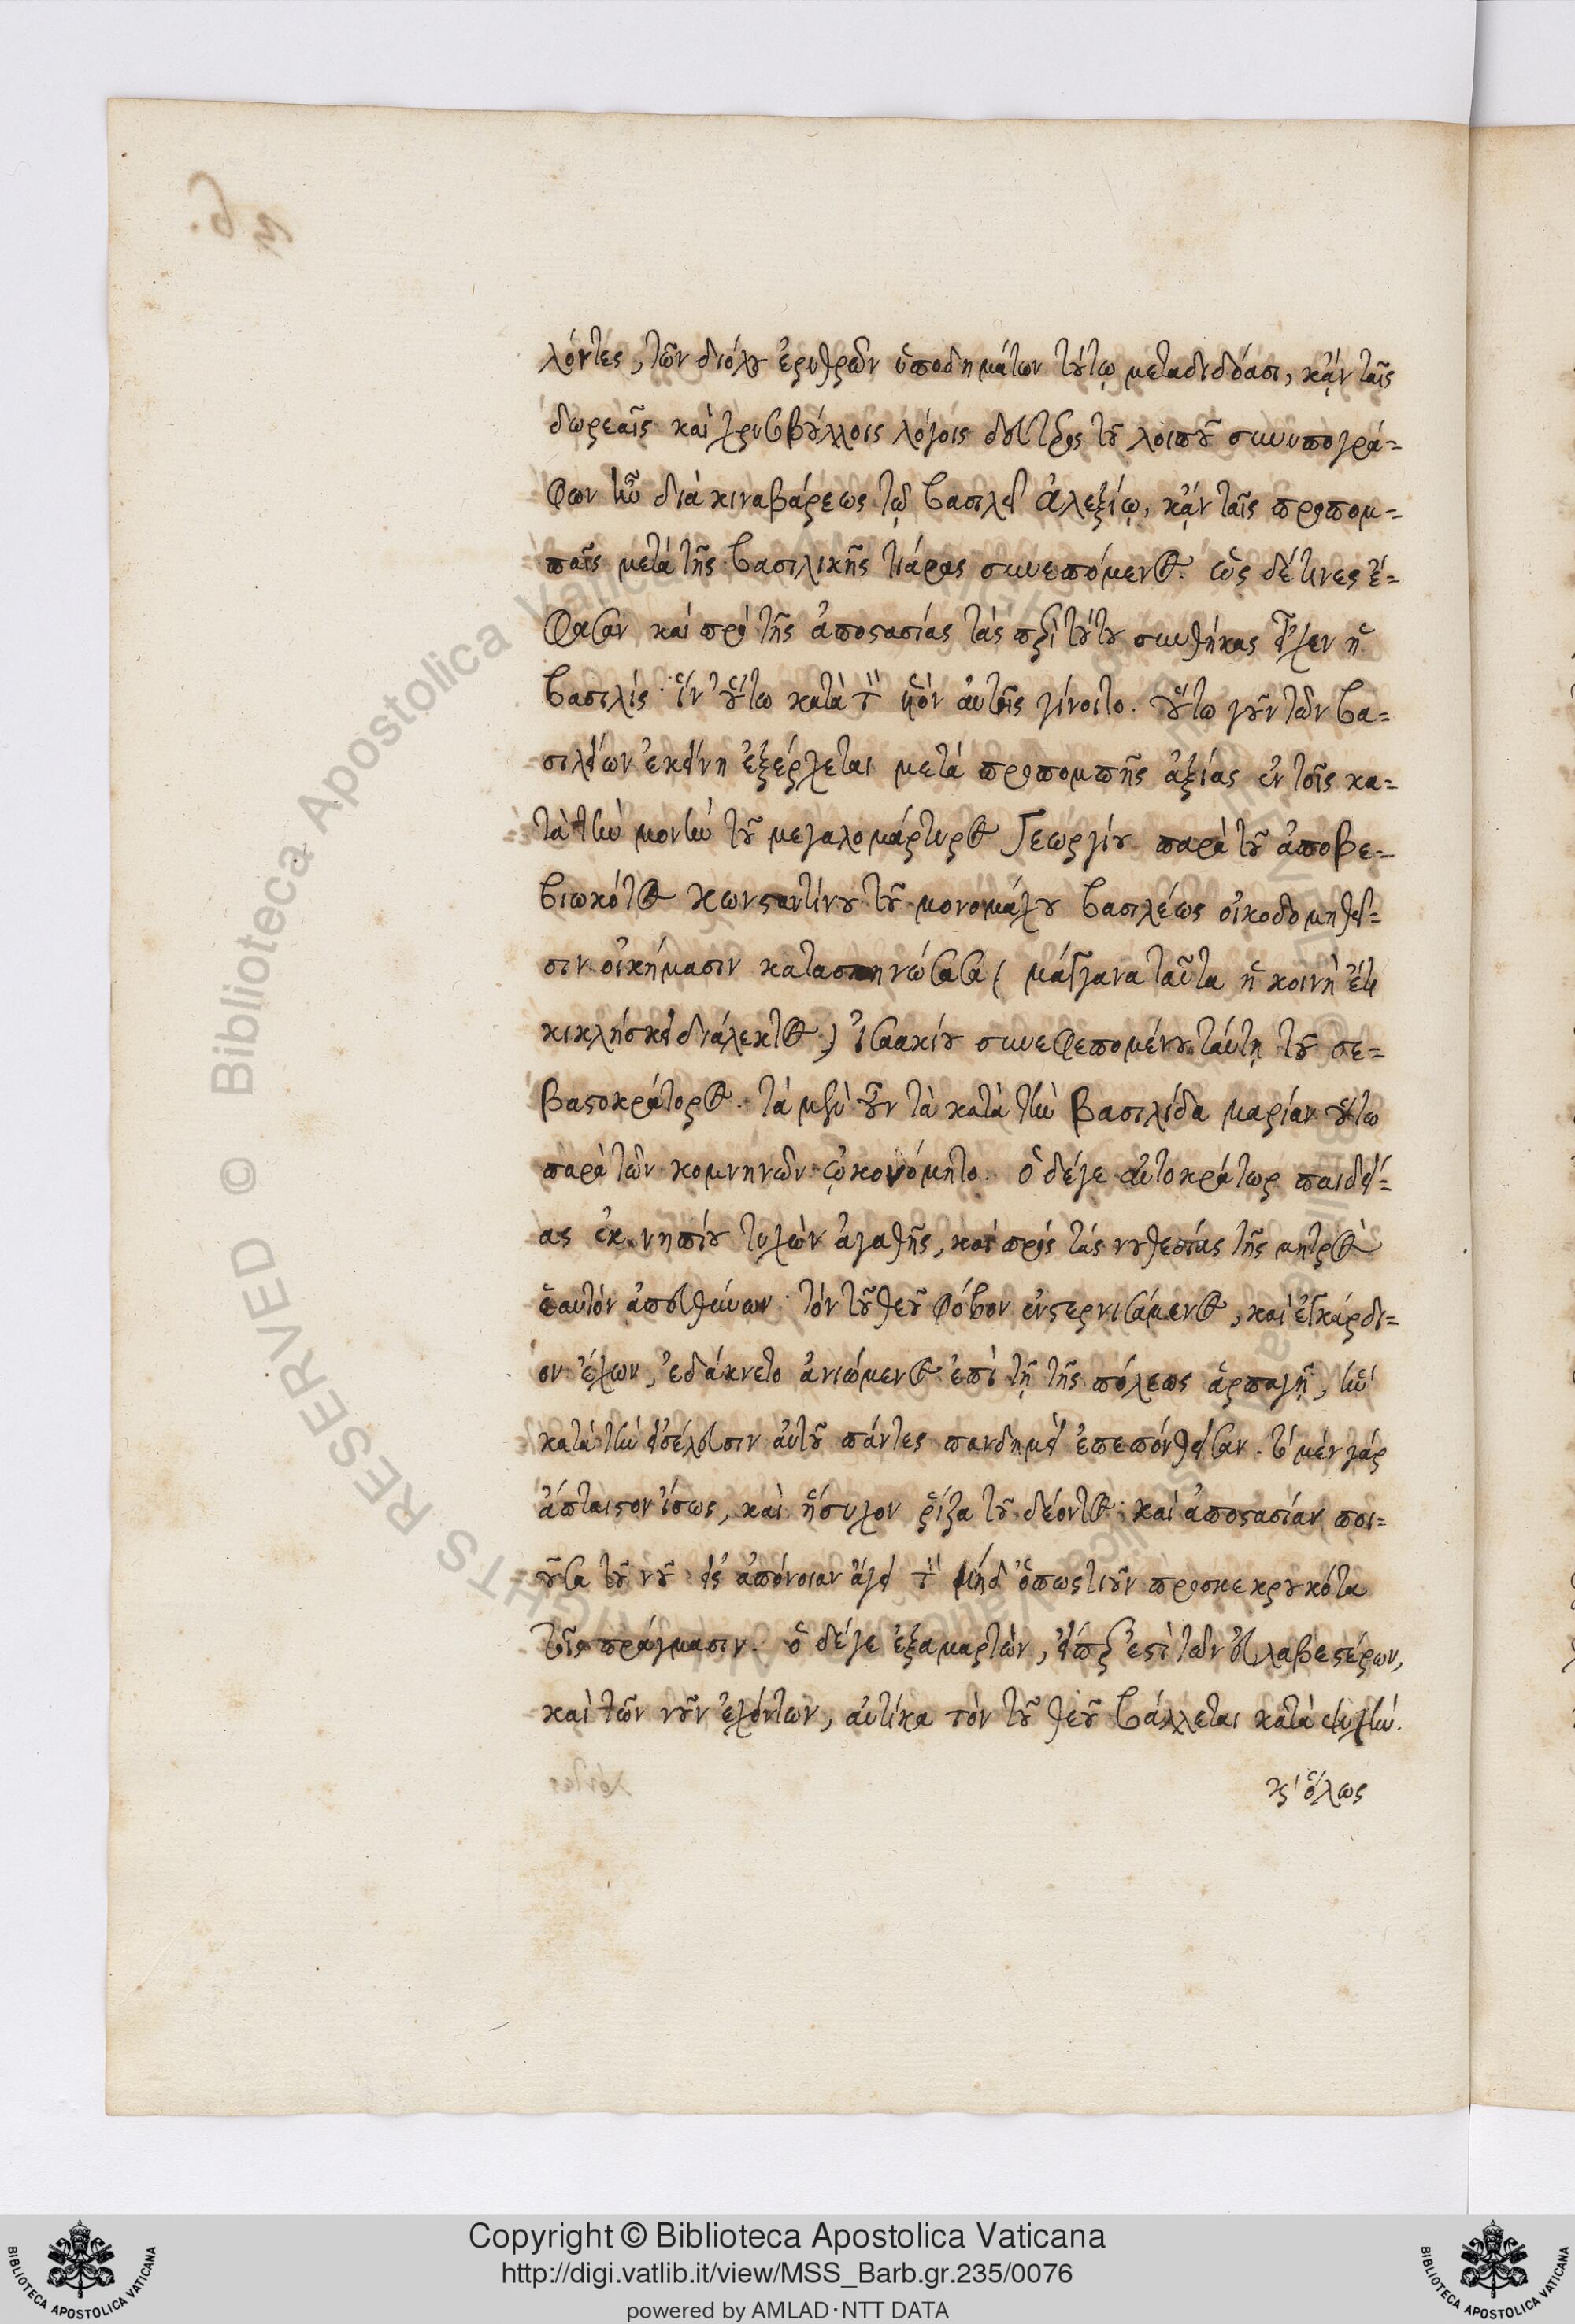 λόντες, τῶν διόλου ἐρυθρῶν ὑποδημάτων τούτῳ μεταδιδόασι, κᾀν ταῖς
δωρεαῖς καὶ χρυσοβούλλοις λόγοις δεύτερος τοῦ λοιποῦ συνυπογρά-
φων ἦν διὰ κινναβάρεως τῷ βασιλεῖ ἀλεξίῳ, κᾀν ταῖς προπομ-
παῖς μετὰ τῆς βασιλικῆς τιάρας συνεπόμενος. ὡς δέ τινες ἔ-
φασαν καὶ πρὸ τῆς ἀποστασίας τὰς περὶ τούτου συνθήκας εἶχεν ἡ
βασιλὶς ἵν' οὕτω κατὰ τὸν υἱὸν αὐτῆς γίνοιτο. οὕτω γοῦν τῶν βα-
σιλείων ἐκείνη ἐξέρχεται μετὰ προπομπῆς ἀξίας ἐν τοῖς κα-
τὰ τὴν μονὴν τοῦ μεγαλομάρτυρος Γεωργίου παρὰ τοῦ ἀποβε-
βιωκότος κωνσταντίνου τοῦ μονομάχου βασιλέως οἰκοδομηθεῖ-
σιν οἰκήμασιν κατασκηνώσασα (μάγγανα ταῦτα ἡ κοινὴ ἔτι
κικλήσκει διάλεκτος) ἰσαακίου συνεφεπομένου ταύτῃ τοῦ σε-
βαστοκράτορος. τὰ μὲν οὖν τὰ κατὰ τὴν βασιλίδα μαρίαν οὕτω
παρὰ τῶν κομνηνῶν ᾠκονόμητο. ὁ δέ γε αὐτοκράτωρ παιδεί-
ας ἐκ νηπίου τυχὼν ἀγαθῆς, καὶ πρὸς τὰς νουθεσίας τῆς μητρὸς
ἑαυτὸν ἀπευθύνων τὸν τοῦ θεοῦ φόβον ἐνστερνισάμενος, καὶ ἐγκάρδι-
ον ἔχων, ἐδάκνετο ἀνιώμενος ἐπὶ τῇ τῆς πόλεως ἁρπαγῇ, ἣν
κατὰ τὴν εἰσέλευσιν αὐτοῦ πάντες πανδημεὶ ἐπεπόνθεισαν. τὸ μὲν γὰρ
ἄπταιστον ἴσως, καὶ ἥσυχον ῥίζα τοῦ δέοντος καὶ ἀποστασίαν ποι-
οῦσα τοῦ νοῦ εἰς ἀπόνοιαν ἄγει τὸν μηδ' ὁπωστιοῦν προσκεκρουκότα
τοῖς πράγμασιν. ὁ δέ γε ἐξαμαρτὼν, εἴπερ ἐστὶ τῶν εὐλαβεστέρων,
καὶ τῶν νοῦν ἐχόντων, αὐτίκα τὸν τοῦ θεοῦ βάλλεται κατὰ ψυχὴν.
κ' ὅλως